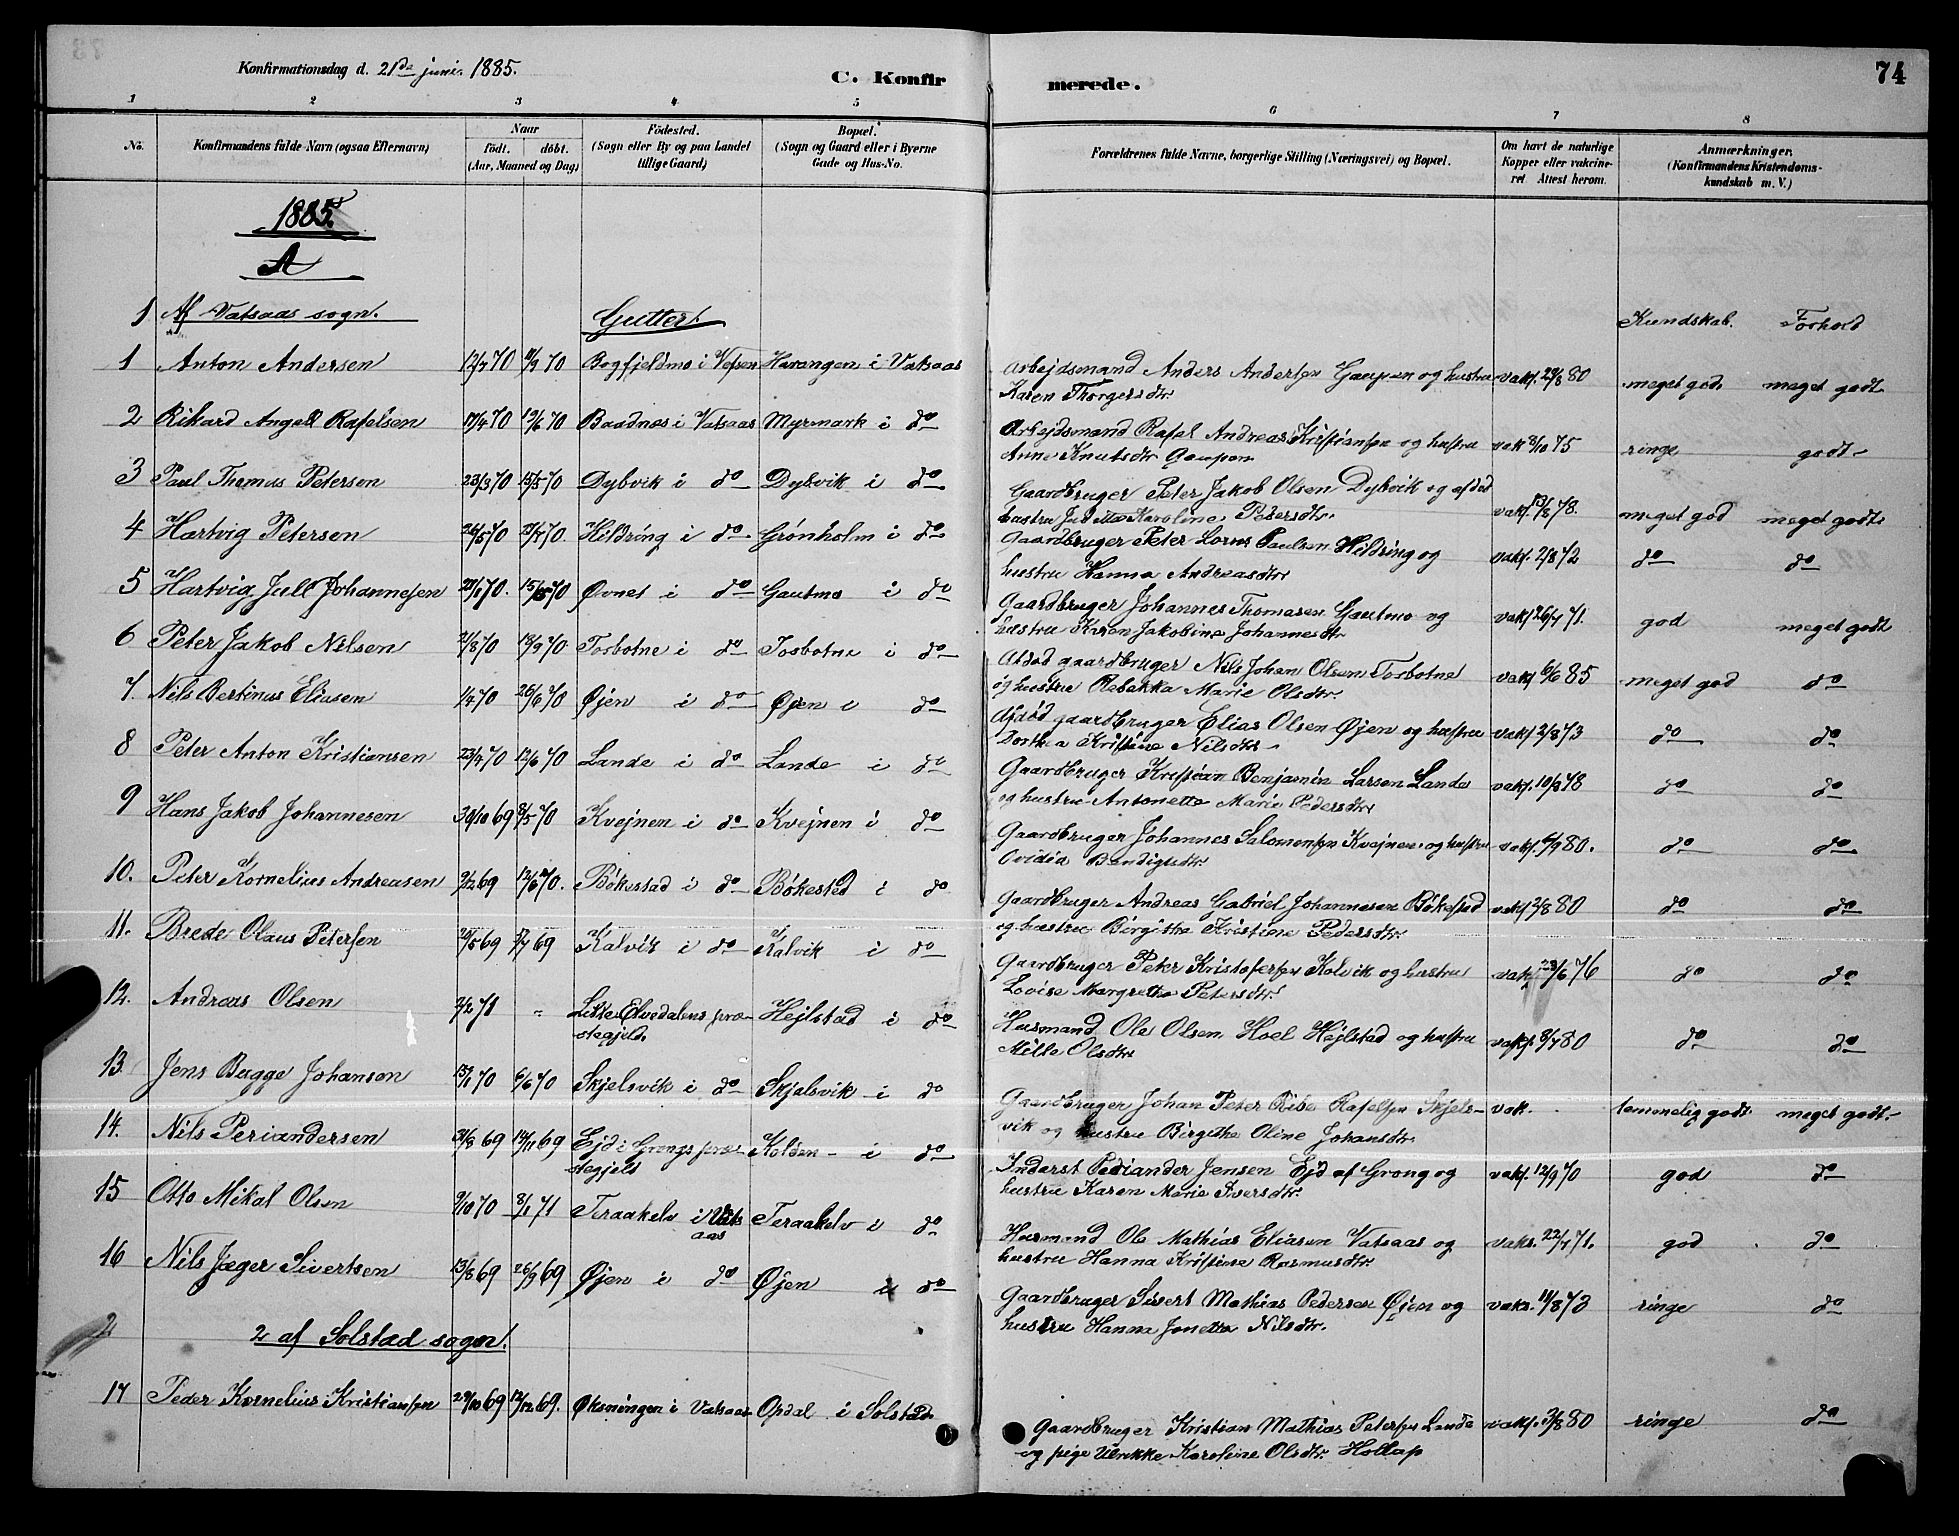 Konfirmationsdag d. 21de juni 1885.
C. Konfirmerede.
74
1 2 3 4 5 6 7 8
No.
Konfirmandens fulde Navn (ogsaa Efternavn)
Naar
födt. döbt.
(Aar, Maaned og Dag)
Födested.
(Sogn eller By og paa Landet
tillige Gaard)
Bopæl.
(Sogn og Gaard eller i Byerne
Gade og Hus-No.
Forældrenes fulde Navne, borgerlige Stilling (Næringsvei) og Bopæl.
Om havt de naturlige
Kopper eller vakcine-
ret Attest herom.
Anmærkninger.
(Konfirmandens Kristendoms-
kundskab m. V.)
1885.
A
1 Af Vatsaas sogn. Gutter. Kundskab. Forhold
1 Anton Andersen 12/7 70 11/9 70 Bogfjeldmo i Vefsen Harangen i Vatsaas Arbejdsmand Anders Andersen Gaupen og hustru vakc. 29/8 80 meget god meget godt
Karen Thorgersdtr.
2 Rikard Angell Rafelsen 17/4 70 19/6 70 Baadnes i Vatsaas Myrmark i do Arbejdsmand Rafel Andreas Kristiansen og hustru vak 8/10 75 ringe godt
Anne Knutsdtr Gaupen
3 Paul Thomas Petersen 23/3 70 15/5 70 Dybvik i do Dybvik i do Gaardbruger Peter Jakob Olsen Dybvik og afdød vakc. 13/8 78 meget god meget godt
hustru Karoline Petersdtr.
4 Hartvig Petersen 26/5 70 Hildring i do Grønholm i do Gaardbruger Peter Lorns Paulsen Hildring og vakc. 2/8 72 do do
hustru Hanna Andreasdtr
5 Hartvig Jull Johannesen 15/5 70 Øvnet i do Gautmo i do Gaardbruger Johannes Thomasen Gautmo og vakc 26/7 71. god meget godt
hustru Karen Jakobine Johannesdtr.
6 Peter Jakob Nilsen 21/8 70 18/9 70 Tosbotne i do Tosbotne i do Afdød gaardbruger Nils Johan Olsen Tosbotne vakc 6/6 85 meget god do
og hustru Rebekka Marie Olsdtr.
7. Nils Bertinus Eliasen 1/4 70 26/6 70 Øjen i do Øjen i do Afdød gaardbruger Elias Olsen Øjen og hustru vakc 2/8 73 do do
Dorthea Kristine Nilsdtr.
8 Peter Anton Kristiansen 23/4 70 12/6 70 Lande i do Lande i do Gaardbruger Kristian Benjamin Larsen Lande vakc. 10/9 78 do do
og hustru Antonette Marie Pedersdtr
9 Hans Jakob Johannesen 30/10 69 8/5 70 Kvejnen i do Kvejnen i do Gaardbruger Johannes Salomonsen Kvejnen og hustru vakc. 6/9 80. do do
Ovidia Bendigtsdtr
10. Peter Kornelius Andreasen 9/12 69 12/6 70. Bökestad i do Bökested i do Gaardbruger Andreas Gabriel Johannesen Bökestad vakc 2/8 80 do do
og hustru Birgithe Kristine Pedersdtr.
11. Brede Olaus Petersen 20/5 69 69 Kalvik i do Kalvik i do Gaardbruger Peter Kristofersen Kalvik og hustru vakc. 23/6 76 do do
Lovise Margrethe Petersdtr.
12. Andreas Olsen 2/2 71 " Litle Elvedalens præ- Hejlstad i do Husmand Ole Olsen Hoel Hejlstad og hustru vakc. 8/7 80 do do
stegjeld. Mille Olsdtr
13. Jens Bugge Johansen 13/1 70 6/6 70 Skjelsvik i do Skjelsvik i do Gaardbruger Johan Peter Ribe Rafelsen Skjels- vak. temmelig godt meget godt
vik og hustru Birgithe Oline Johansdtr.
14. Nils Periandersen 31/8 69 14/11 69 Ejd i Grongs præ- Kolden i do Inderst Periander Jensen Ejd af Grong og vakc. 12/9 70 god do
stegjeld hustru Karen Marie Iversdtr.
15 Otto Mikal Olsen 9/10 70 8/1 71 Teraakelv i Vats Teraakelv i do Husmand Ole Mathias Eliasen Vatsaas og vakc. 22/7 71. god do
aas hustru Hanna Kristine Rasmusdtr.
16 Nils Jæger Sivertsen 13/8 69 26/9 69 Øjen i do Øjen i do Gaardbruger Sivert Mathias Pedersen Øjen og vakc. 11/8 73 ringe do
hustru Hanna Jonetta Nilsdtr.
2 2 af Solstad sogn.
17 Peder Kornelius Kristiansen 29/10 69 12/12 69. Øksningen i Vatsaas Opdal i Solstad Gaardbruger Kristian Mathias Petersen Lande vakc. 3/8 80 ringe do
og pige Ulrikke Karoline Olsdtr. Hollap